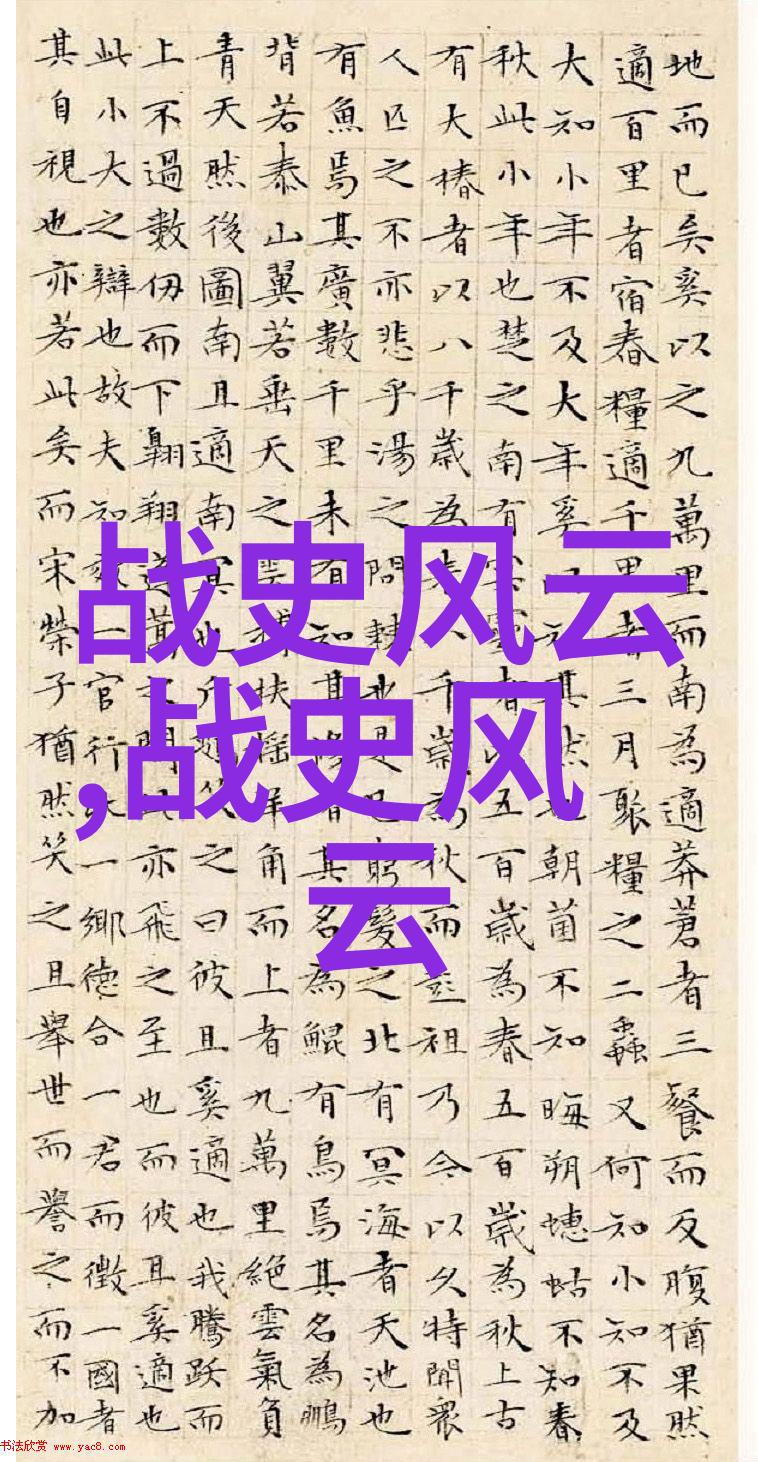 地而已矣奚以之九萬里而南為適莽蒼者三餐而反腹猶果然
適百里者宿舂糧適千里者三月聚糧之二蟲又何知小知不及
大知小年不及大年奚以知其然也朝菌不知晦朔蟪蛄不知春
秋此小年也楚之南有冥靈者以五百歲為春五百歲為秋上古
有大椿者以八千歲為春八千歲為秋而彭祖乃今以久特聞衆
人匹之不亦悲乎湯之問棘也是已窮髮之北有冥海者天池也
有魚焉其廣數千里未有知其修者其名為鯤有鳥焉其名為鵬
背若泰山翼若垂天之雲摶扶搖羊角而上者九萬里絕雲氣負
青天然後圖南且適南冥也斥鴳笑之曰彼且奚適也我騰躍而
上不過數仞而下翱翔蓬蒿之間此亦飛之至也而彼且奚適也
此小大之辯也故夫知效一官行比一鄉德合一君而徵一國者
其自視也亦若此矣而宋榮子猶然笑之且舉世而譽之而不加
战史风云
,战史风
云
书法欣赏 www.yac8.com